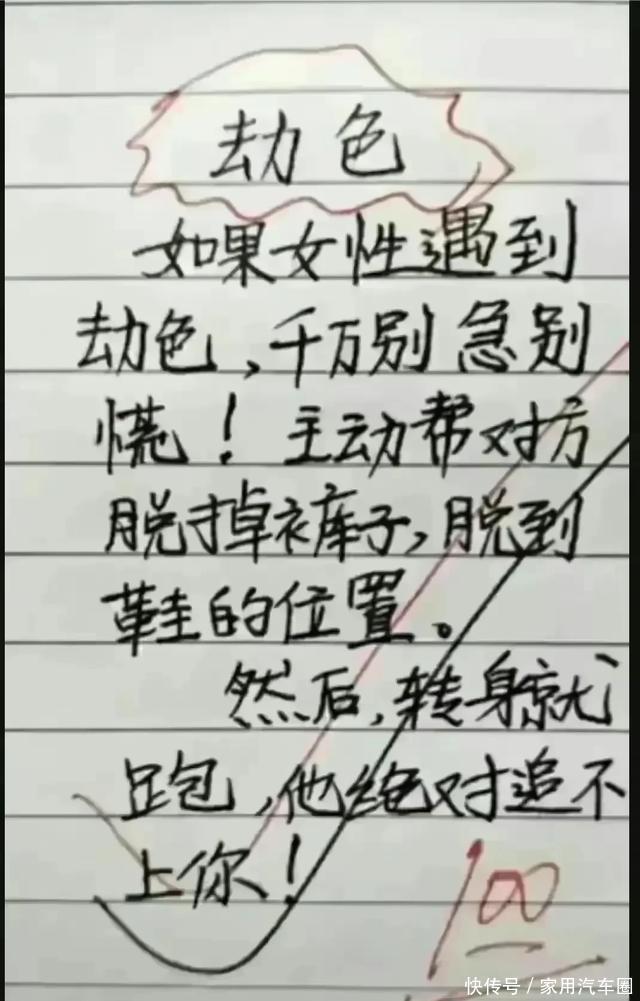 劫色
如果女性遇到
劫色,千万别急别
慌!主动帮对方
脱掉裤子,脱到
鞋的位置。
然后,转身就
跑,他绝对追不
上你!
100
快传号/家用汽车圈